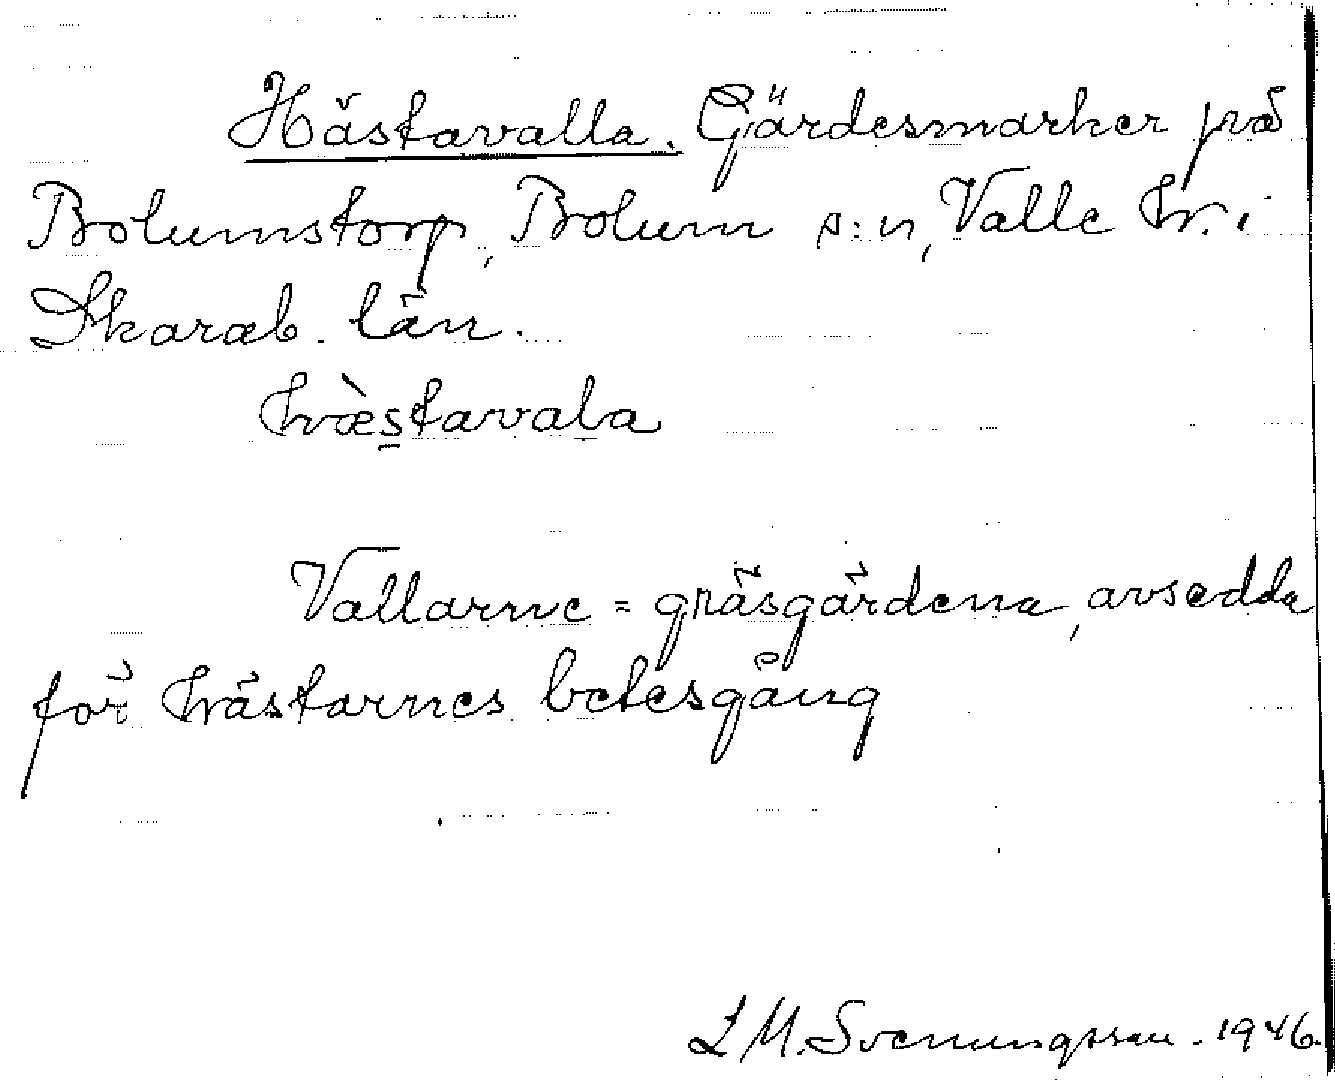 Hästavalla. Gärdesmarker på
Bolumstorp, Bolum s:n, Valle hr. i
Skarab. län.
hæ̀stavala
Vallarne = gräsgärdena, avsedda
för hästarnes betesgång
L M. Svenungsson. 1946.